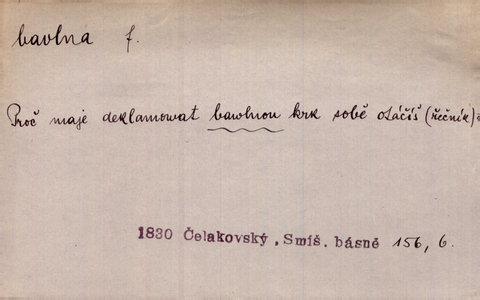 bavlna f.
Proč maje deklamowat bawlnou krk sobě otáčíš (řečník)
1830 Čelakovský, Smíš. básně 156, 6.